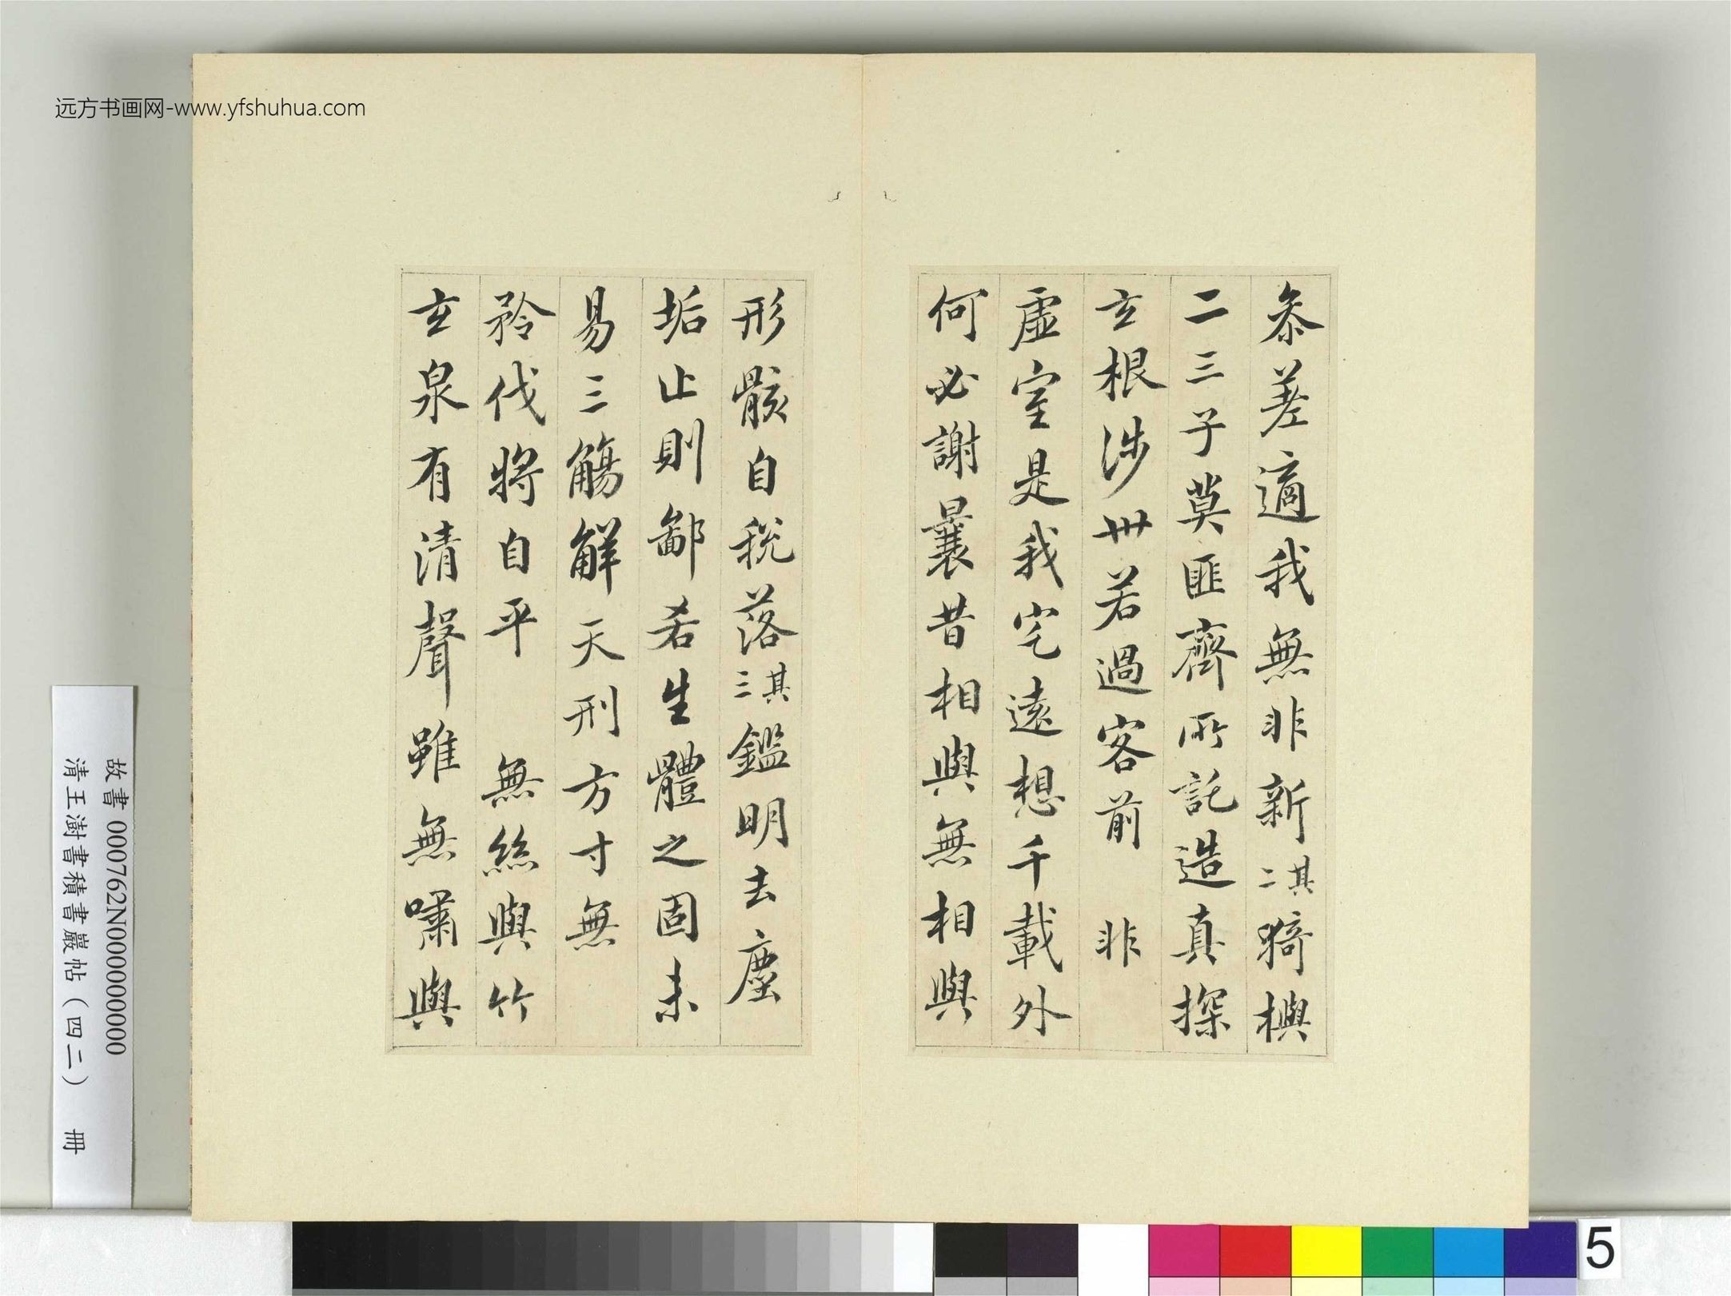 远方书画网-www.yfshuhua.com
参差適我無非新其二猗與
二三子莫匪齊所託造真探
玄根涉世若過客前 非
虛室是我宅遠想千載外
何必謝曩昔相與無相與
形骸自稅落其三鑑明去塵
垢止則鄙吝生體之固未
易三觴解天刑方寸無
矜伐將自平 無絲與竹
玄泉有清聲雖無嘯與
故書 000762N000000000
清王澍書積書巖帖（四二） 冊
5